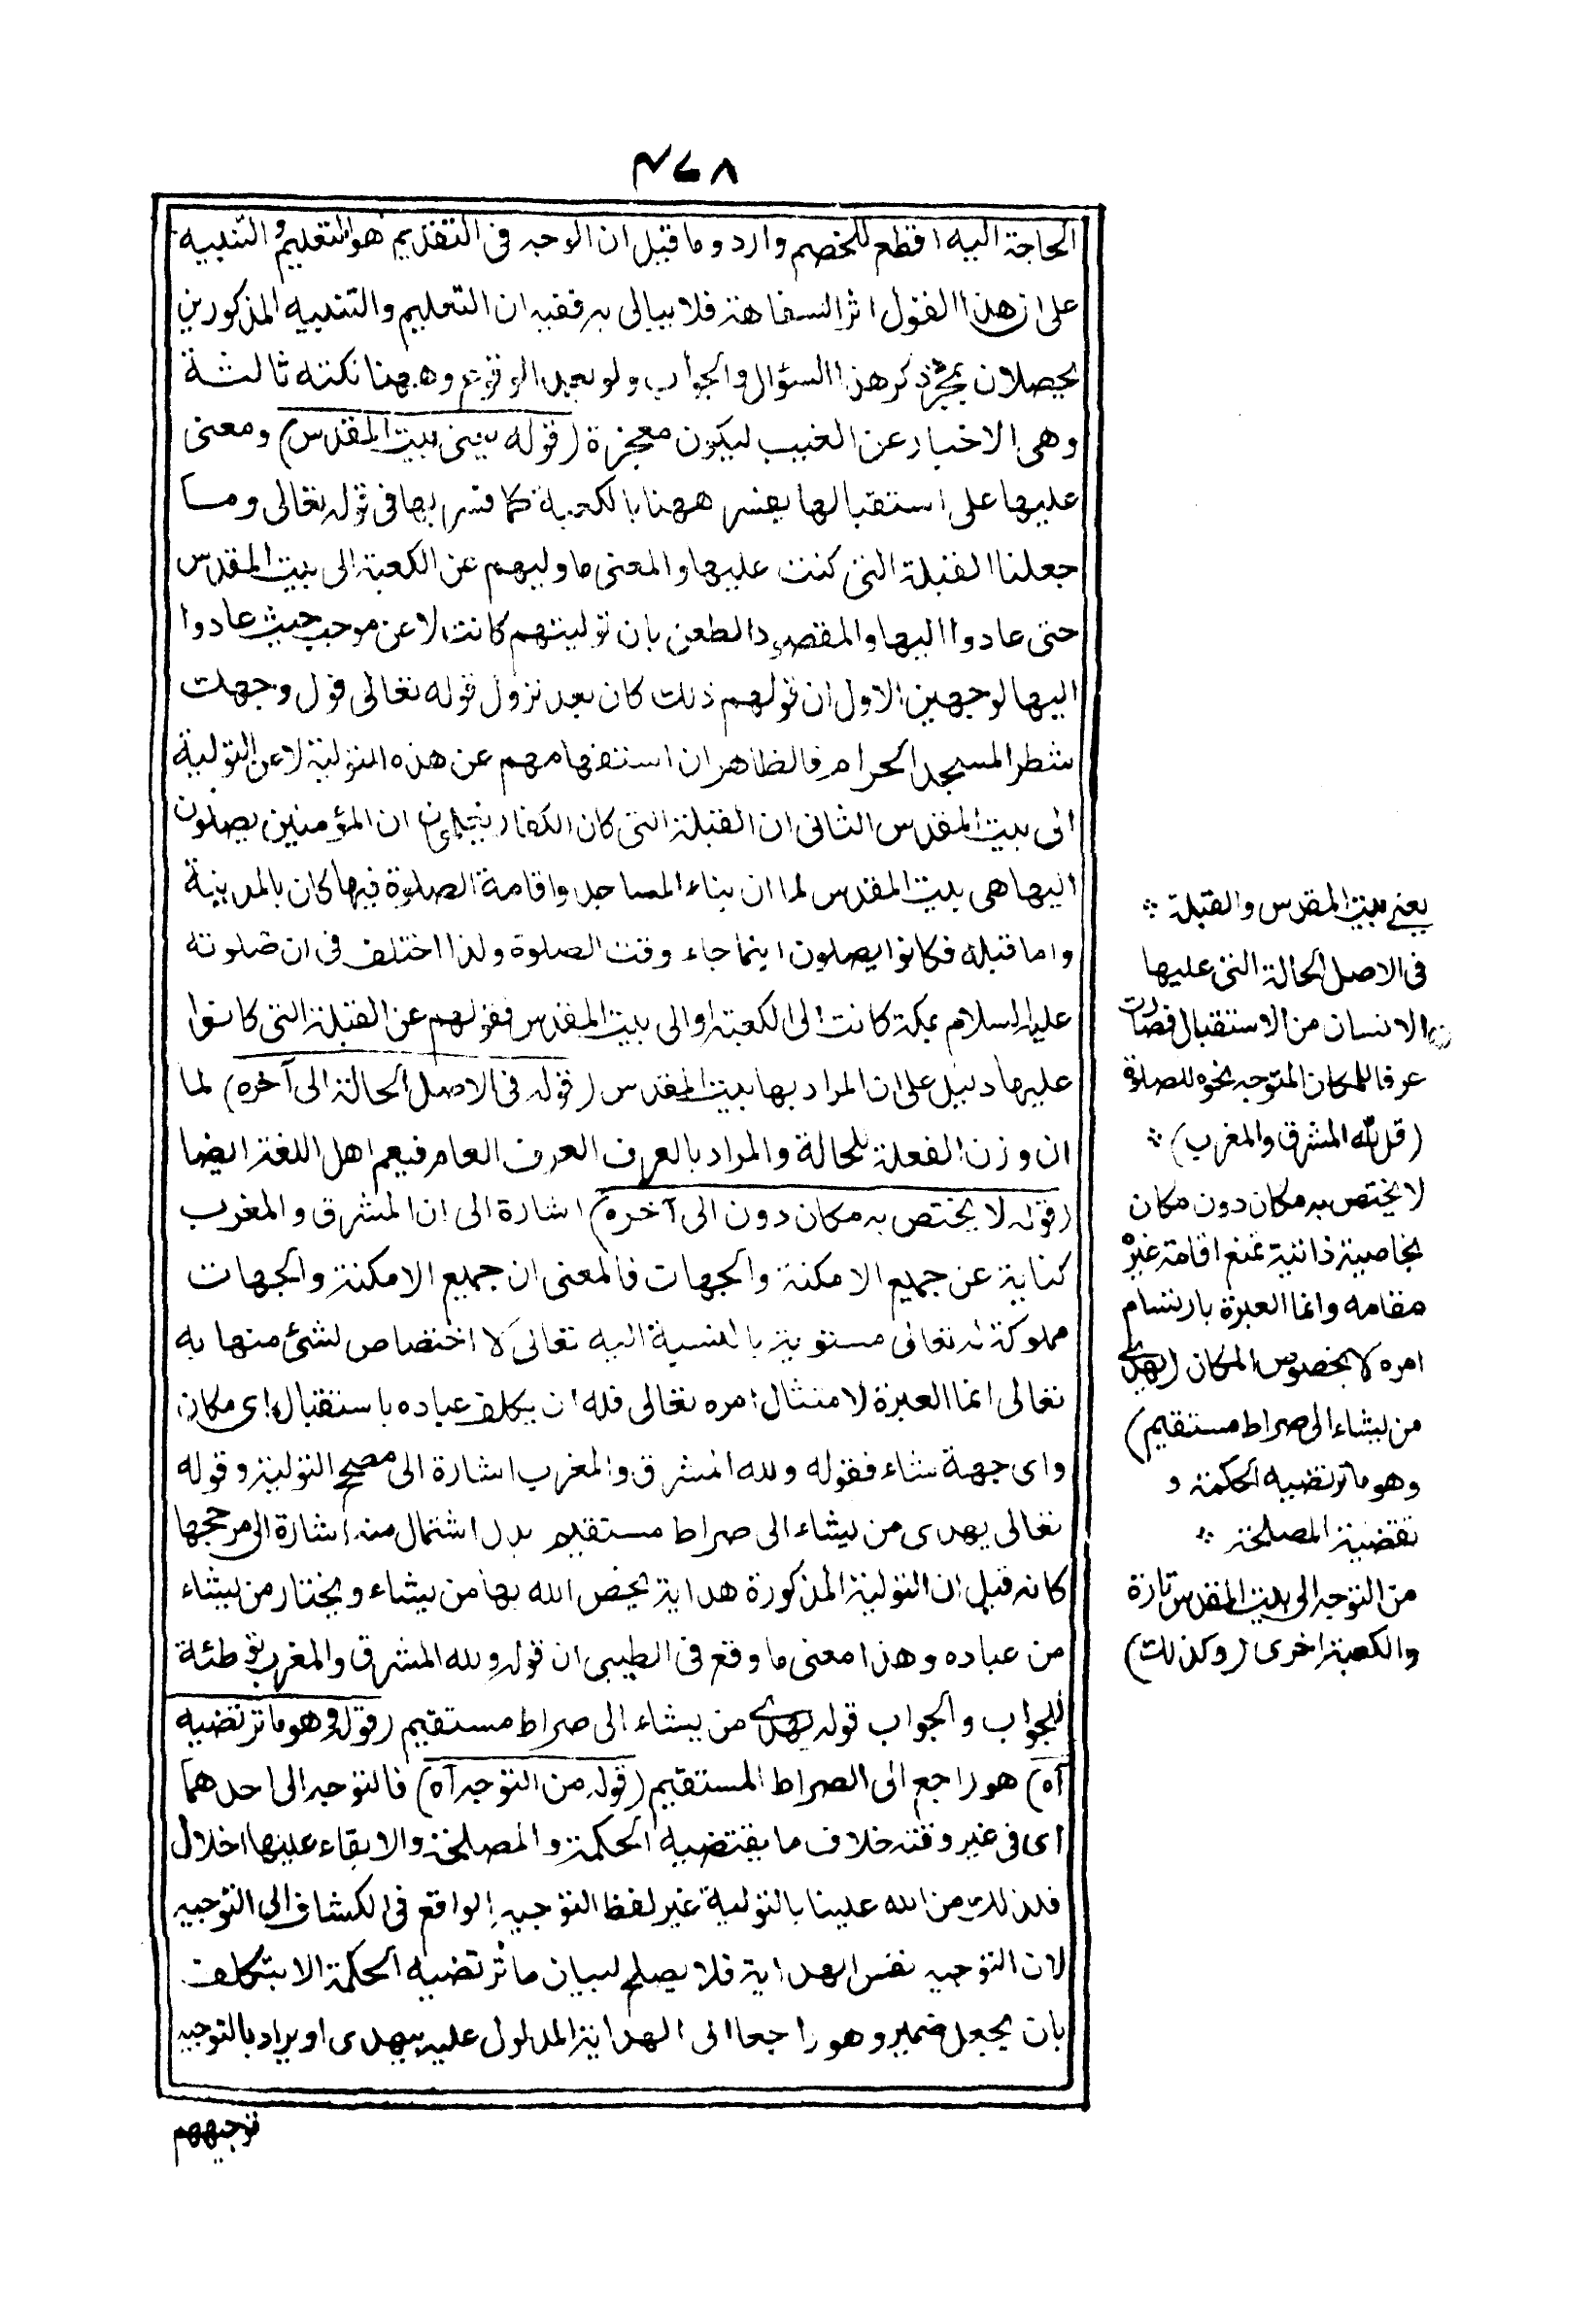 ٤٧٨
الحاجة اليه اقطع للخصم وارد وما قيل ان الوجه فى التقديم هو التعليم والتنبيه
على ان هذا القول اثر السفاهة فلا يبالى به ففيه ان التعليم والتنبيه المذكورين
يحصلان بمجرد ذكر هذا السؤال والجواب ولو بعد الوقوع وههنا نكتة ثالثة
وهى الاخبار عن الغيب ليكون معجزة (قوله يعنى بيت المقدس) ومعنى
عليها على استقبالها يفسر ههنا بالكعبة كما فسر بها فى قوله تعالى وما
جعلنا القبلة التى كنت عليها والمعنى ما وليهم عن الكعبة الى بيت المقدس
حتى عادوا اليها والمقصود الطعن بان توليتهم كانت لا عن موجب حيث عادوا
اليها لوجهين الاول ان قولهم ذلك كان بعد نزول قوله تعالى فول وجهك
شطر المسجد الحرام فالظاهر ان استفهامهم عن هذه التولية لا عن التولية
الى بيت المقدس الثانى ان القبلة التى كان الكفار ان المؤمنين يصلون
اليها هى بيت المقدس لما ان بناء المساجد واقامة الصلوة فيها كان بالمدينة
واما قبله فكانوا يصلون اينما جاء وقت الصلوة ولذا اختلف فى ان صلوته
عليه السلام بمكة كانت الى الكعبة او الى بيت المقدس فقولهم عن القبلة التى كانوا
عليها دليل على ان المراد بها بيت المقدس (قوله فى الاصل الحالة الى آخره) لما
ان وزن الفعلة للحالة والمراد بالعرف العرف العام فيعم اهل اللغة ايضا
(قوله لا يختص به مكان دون الى آخره) اشارة الى ان المشرق والمغرب
كناية عن جميع الامكنة والجهات فالمعنى ان جميع الامكنة والجهات
مملوكة له تعالى مستوية بالنسبة اليه تعالى لا اختصاص لشئ منها به
تعالى انما العبرة لامتثال امره تعالى فله ان يكلف عباده باستقبال اى مكان
واى جهة شاء فقوله ولله المشرق والمغرب اشارة الى مصحح التولية وقوله
تعالى يهدى من يشاء الى صراط مستقيم بدل اشتمال منه اشارة الى مرجحها
كانه قيل ان التولية المذكورة هداية يخص الله بها من يشاء ويختار من يشاء
من عباده وهذا معنى ما وقع فى الطيبى ان قوله ولله المشرق والمغرب توطئة
للجواب والجواب قوله يهدى من يشاء الى صراط مستقيم (قوله وهو ما ترتضيه
آه) هو راجع الى الصراط المستقيم (قوله من التوجه آه) فالتوجه الى احدهما
اى فى غير وقته خلاف ما يقتضيه الحكمة والمصلحة والابقاء عليها اخلال
فلذلك من الله علينا بالتولية غير لفظ التوجيه الواقع فى الكشاف الى التوجيه
لان التوجيه نفس الهداية فلا يصلح لبيان ما ترتضيه الحكمة الا بتكلف
بان يجعل ضمير وهو راجعا الى الهداية المدلول عليه بيهدى او يراد بالتوجيه
توجيههم
يعنى بيت المقدس والقبلة
فى الاصل الحالة التى عليها
الانسان من الاستقبال فصارت
عرفا للمكان المتوجه نحوه للصلوة
(قل لله المشرق والمغرب)
لا يختص به مكان دون مكان
بخاصية ذاتية تمنع اقامة غيره
مقامه وانما العبرة بارتسام
امره لا بخصوص المكان (يهدى
من يشاء الى صراط مستقيم)
وهو ما ترتضيه الحكمة و
تقتضيه المصلحة
من التوجه الى بيت المقدس تارة
والكعبة اخرى (وكذلك)